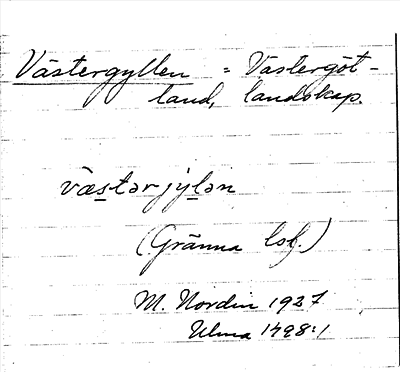 Västergyllen = Västergöt-
land, landskap.
væstərjylən
(Gränna lsf.)
M. Nordin 1927
Ulma 1498:1